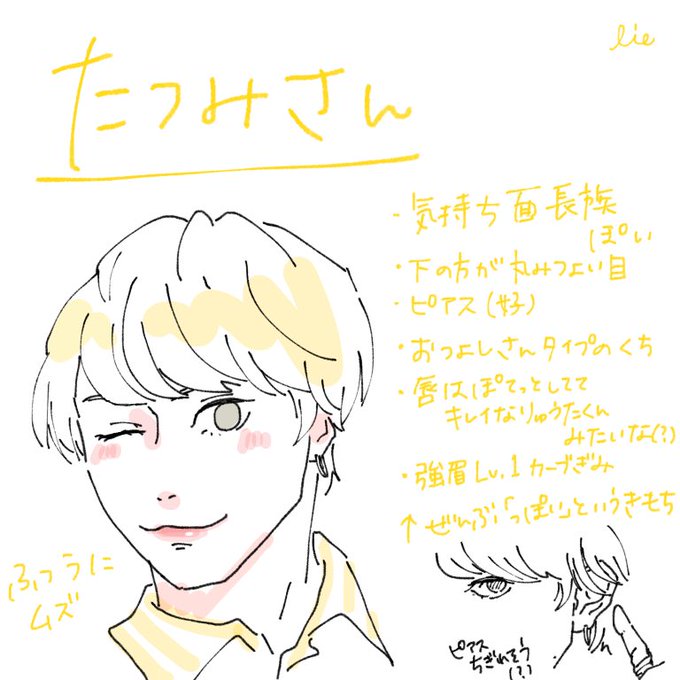 lie
たつみさん
・気持ち面長族
ぽい
・下の方が丸みつよい目
・ピアス(好)
・おつよしさんタイプのくち
・唇はぽてっとしてて
キレイなりゅうたくん
みたいな(?)
・強眉Lv.1カーブぎみ
↑ぜんぶ「っぽい」というきもち
ふつうに
ムズ
ピアス
ちぎれそう
(?)